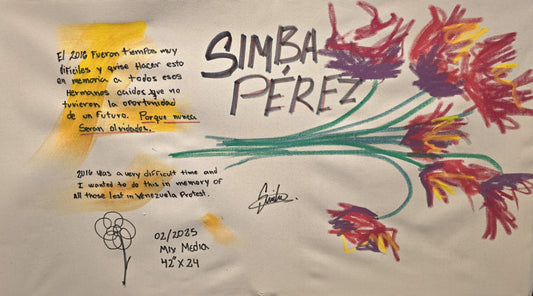 El 2016 Fueron tiempos muy
dificiles y quise Hacer esto
en memoria a todos esos
Hermanos caidos que no
tuvieron la oportunidad
de un Futuro. Porque nunca
Seran olvidados.
SIMBA
PÉREZ
2016 was a very difficult time and
I wanted to do this in memory of
All those lost in Venezuela Protest.
02/2025
Mix Media
42" X 24